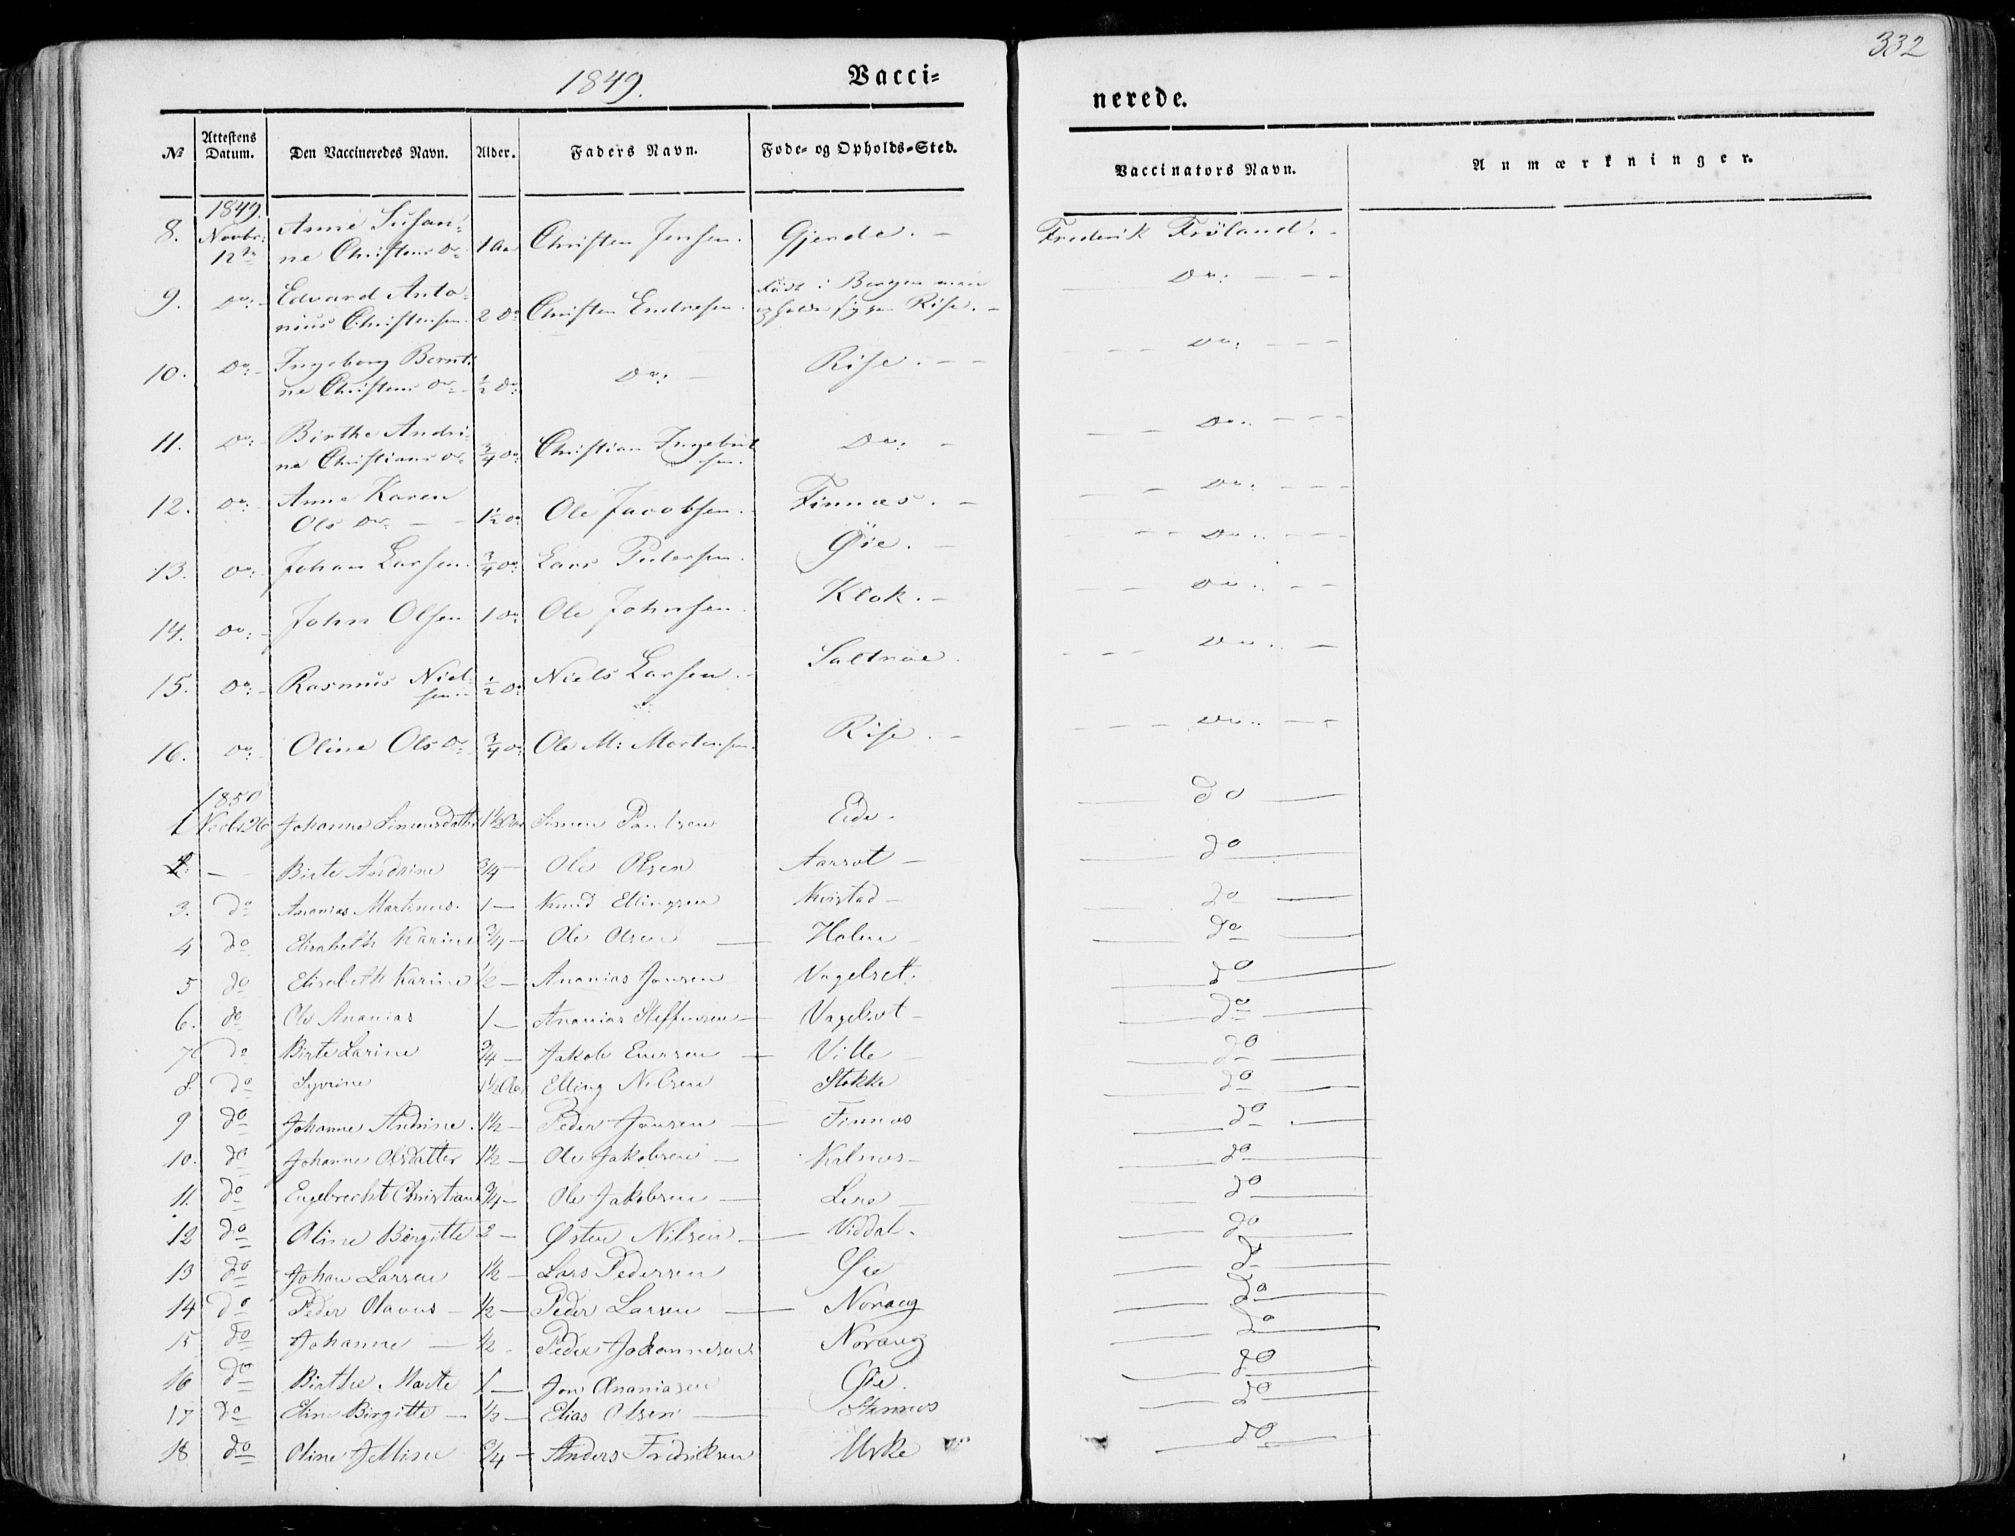 332
1849.
Vacci-
nerede.
№ Attestens Datum. Den Vaccineredes Navn. Alder. Faders Navn. Føde- og Opholds-Sted. Vaccinators Navn. Anmærkninger.
1849.
8. Novbr: 12te Anne Susanne Christens Dr 1 Aar Christen Jensen. Gjerde. Frederik Frøland.
9. Do: Edvard Antonius Christensen 2 Do Christen Endresen. født i Bergen men opholder sig paa Rise. Do:
10. Do: Ingeborg Berntine Christens Dr 1/2 Do: Do: Rise. Do:
11. Do: Birthe Andrine Christians Dr 3/4 Do: Christian Ingebritsen. Do: Do:
12. Do: Anne Karen Ols Dr 1 1/2 Do Ole Jacobsen. Finnæs. Do:
13. Do: Johan Larsen. 3/4 Do: Lars Pedersen. Øie. Do:
14. Do: John Olsen 1 Do: Ole Johnsen. Klok. Do:
15. Do: Rasmus Nielsen 1/2 Do: Niels Larsen. Saltrøe. Do:
16. Do: Oline Ols Dr 3/4 Do: Ole M: Mortensen. Rise. Do:
1850
1 Novbr 26 Johanne Simensdatter 1 1/2 Aar Simen Paulsen Eide. do
2. — Birte Andrine 3/4 — Ole Olsen Aarsæt — do
3. do Ananias Martinus. 1 — Knud Ellingsen Kvistad — do
4 do Elisabeth Karine 3/4 — Ole Olsen Holen do
5 do Elisabeth Karine 1/2 — Ananias Jonsen Vagelset. do
6. do Ole Ananias 1 — Ananias Steffensen — Vagelset — do
7 do Birte Larine 3/4 — Jakob Eversen Ville do
8. do Syvrine 1 1/2 Aar Elling Nilsen Stokke do
9 do Johanne Andrine. 1 1/2 — Peder Jonsen Finnæs do
10. do Johanne Olsdatter 1 1/2 — Ole Jakobsen — Kalnes — do
11. do Engebrecht Christian 3/4 — Ole Jakobsen — do
12 do Oline Birgitte 2 — Østen Nilsen — Viddal. do
13 do Johan Larsen 1 1/2 — Lars Pedersen Øie do
14 do Peder Olavus — 1/2 — Peder Larsen Norang do
15 do Johanne — 1/2 — Peder Johannesen Norang do
16 do Birthe Marte 1 — Jon Ananiasen Øie. do
17 do Eline Birgitte — 1/2 — Elias Olsen — Stennes do
18 do Oline 3/4 — Anders Fredriksen Urke do